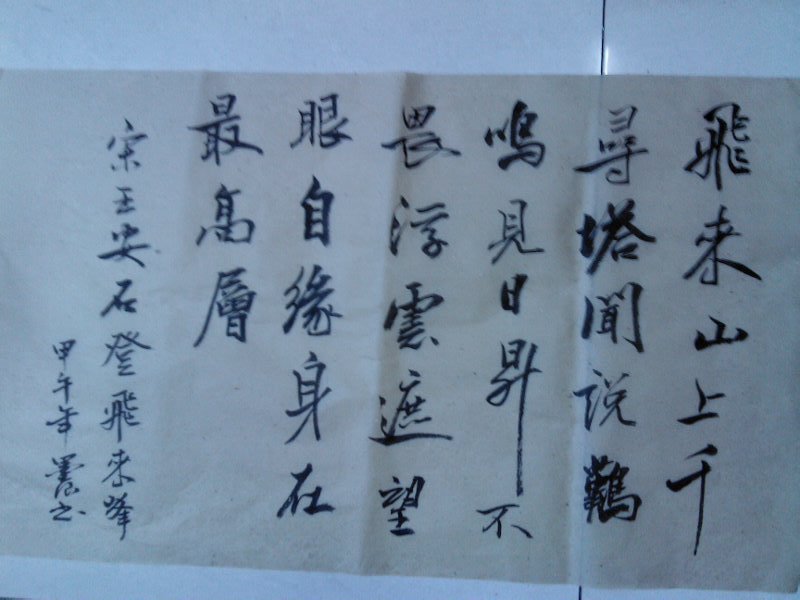 飛來山上千
尋塔聞説鷄
鳴見日昇不
畏浮雲遮望
眼自緣身在
最高層
宋王安石登飛來峰
甲午年書